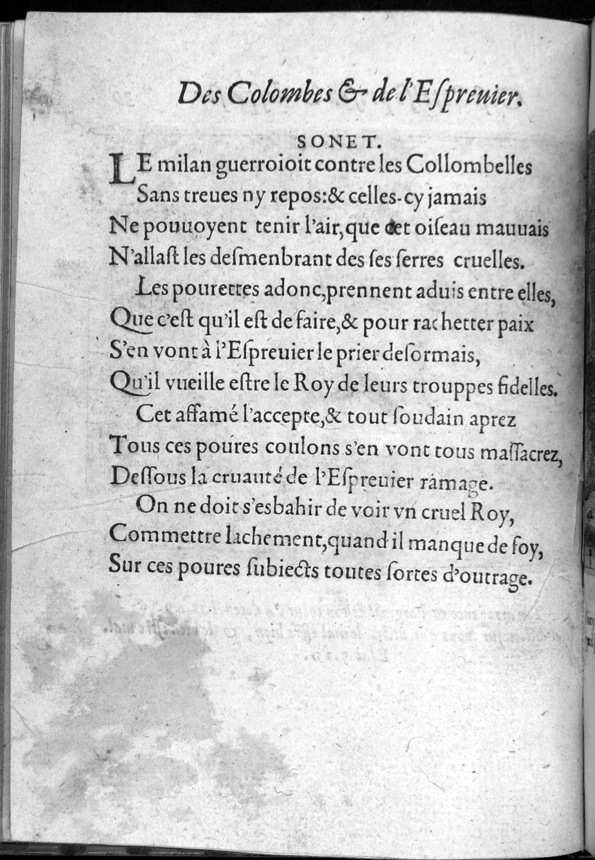 Des Colombes & de l'Eſpreuier.
SONET.
LE milan guerroioit contre les Collombelles
Sans treues ny repos:& celles-cy jamais
Ne pouuoyent tenir l'air,que cet oiſeau mauuais
N'allaſt les deſmenbrant des ſes ſerres cruelles.
Les pourettes adonc,prennent aduis entre elles,
Que c'eſt qu'il eſt de faire,& pour rachetter paix
S'en vont à l'Eſpreuier le prier deſormais,
Qu'il vueille eſtre le Roy de leurs trouppes fidelles.
Cet affamé l'accepte,& tout ſoudain aprez
Tous ces poures coulons s'en vont tous maſſacrez,
Deſſous la cruauté de l'Eſpreuier ramage.
On ne doit s'esbahir de voir vn cruel Roy,
Commettre lachement,quand il manque de foy,
Sur ces poures ſubiects toutes ſortes d'outrage.